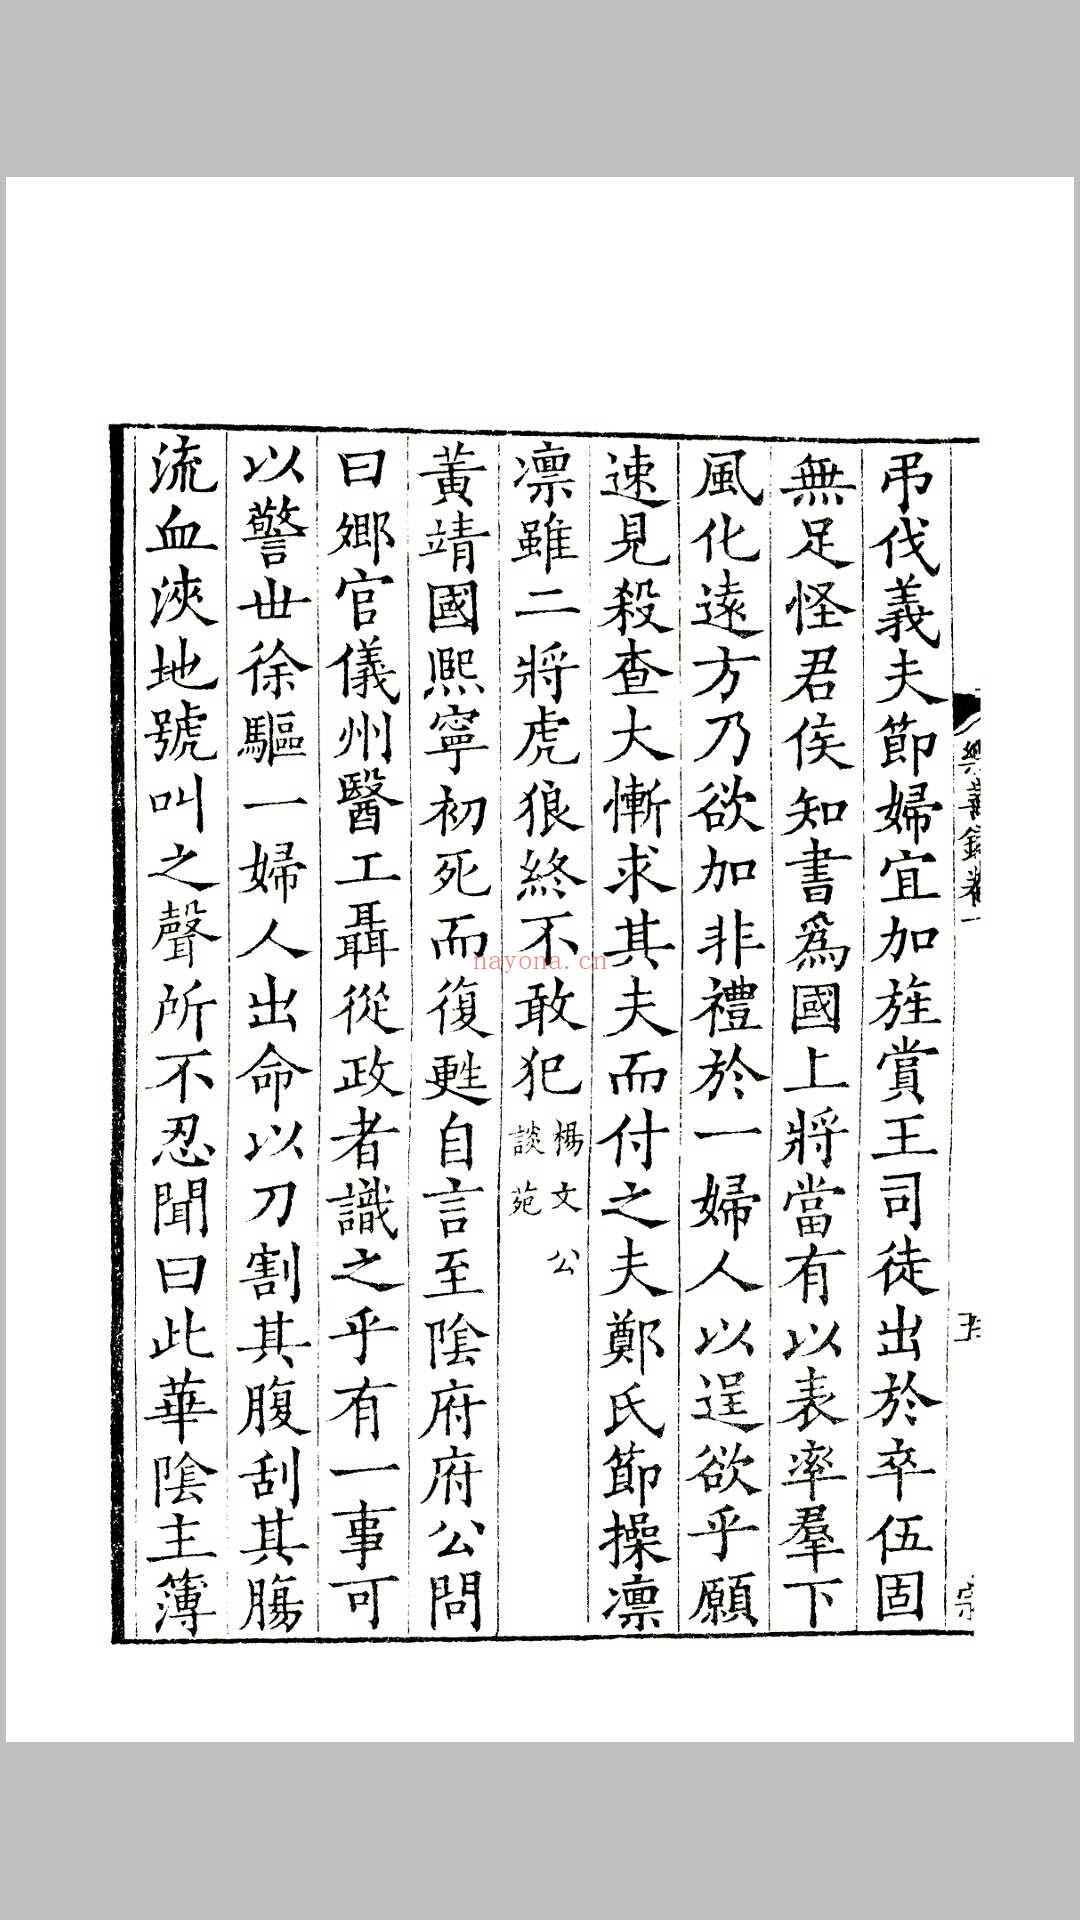 弔伐義夫節婦宜加旌賞王司徒出於卒伍固
無足怪君侯知書爲國上將當有以表率羣下
風化遠方乃欲加非禮於一婦人以逞欲乎願
速見殺查大慚求其夫而付之夫鄭氏節操凛
凛雖二將虎狼終不敢犯楊文公談苑
黃靖國熙寧初死而復甦自言至陰府府公問
曰鄉官儀州醫工聶從政者識之乎有一事可
以警世徐驅一婦人出命以刀割其腹刮其腸
流血浹地號叫之聲所不忍聞曰此華陰主簿
樂善錄卷一
nayona.cn